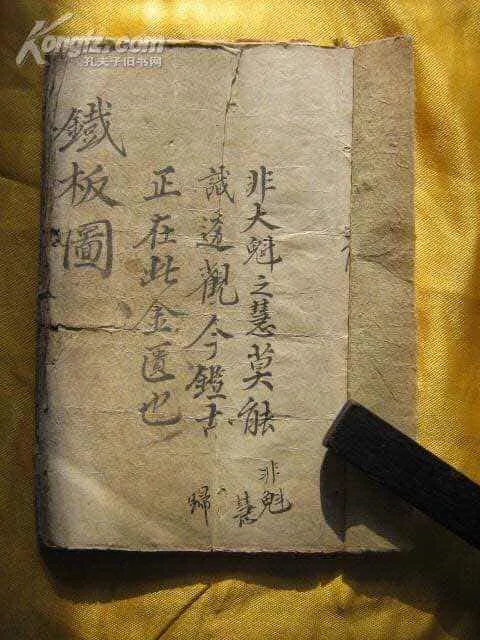 Kongfz.com
孔夫子旧书网
非大魁之慧莫能
識遠觀今鑑古
正在此金匱也
鐵板圖
非魁
慧
歸